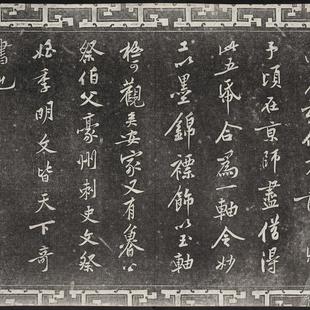 予頃在京師盡借得
此五帋合為一軸令妙
工以墨錦褾飾以玉軸
觀美安家又有魯公
祭伯父豪州刺史文祭
姪季明文皆天下奇
書也